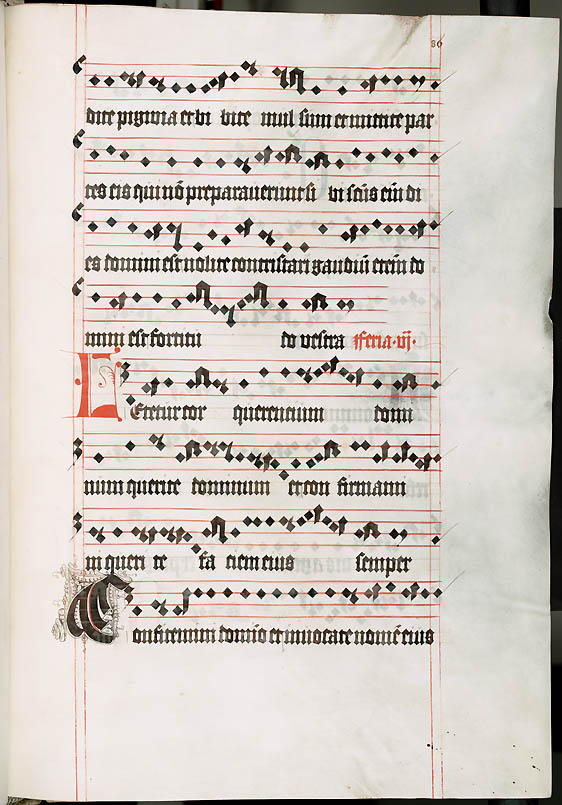 86
dite pi͞gwia et bi bite mulsum et mittite par
tes eis qui nō preparaverunt si bi sc̄us ei͞m di
es domini est nolite contristari gaudiū eteim do
mini est fortitu do vestra Feria .vj.
Letetur cor querentium domi
num querite dominum et con firmami
ni queri te fa ciem eius semper
Confitemini domīo et invocate nomē eius